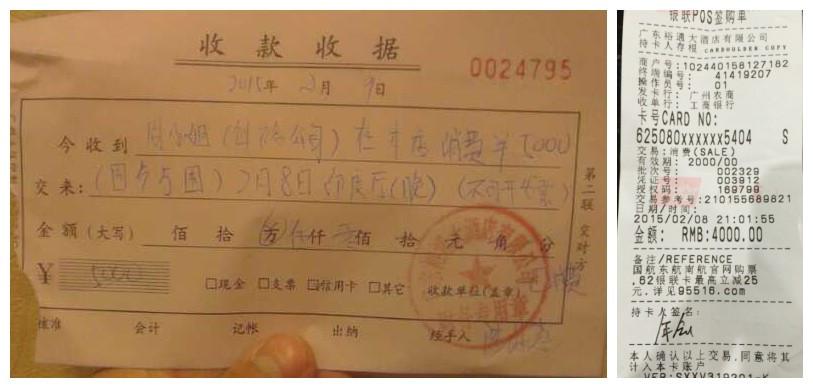 收款收据
0024795
2015年 2月 9日
今收到 在本店消费￥5000
交来: 2月8日
金额(大写) 佰 拾 万 仟 佰 拾 元 角 分
¥ 5000 □现金 □支票 □信用卡 □其它 收款单位(盖章)
核准 会计 记帐 出纳 经手人
第二联 交对方
银联POS签购单
广东裕通大酒店有限公司
持卡人存根 CARDHOLDER COPY
商户号:102440158127182
终端编号: 41419207
操作员号: 01
发卡行: 广州农商
收单行: 工商银行
卡号CARD NO:
625080xxxxxx5404 S
交易:消费(SALE)
有效期: 2000/00
批次号: 002329
凭证号: 003912
授权码: 169799
交易参考号:210155689821
日期/时间:
2015/02/08 21:01:55
金额: RMB:4000.00
备注/REFERENCE
国航东航南航官网购票
,62银联卡最高立减25
元,详见95516.com
持卡人签名:
本人确认以上交易,同意将其
计入本卡账户